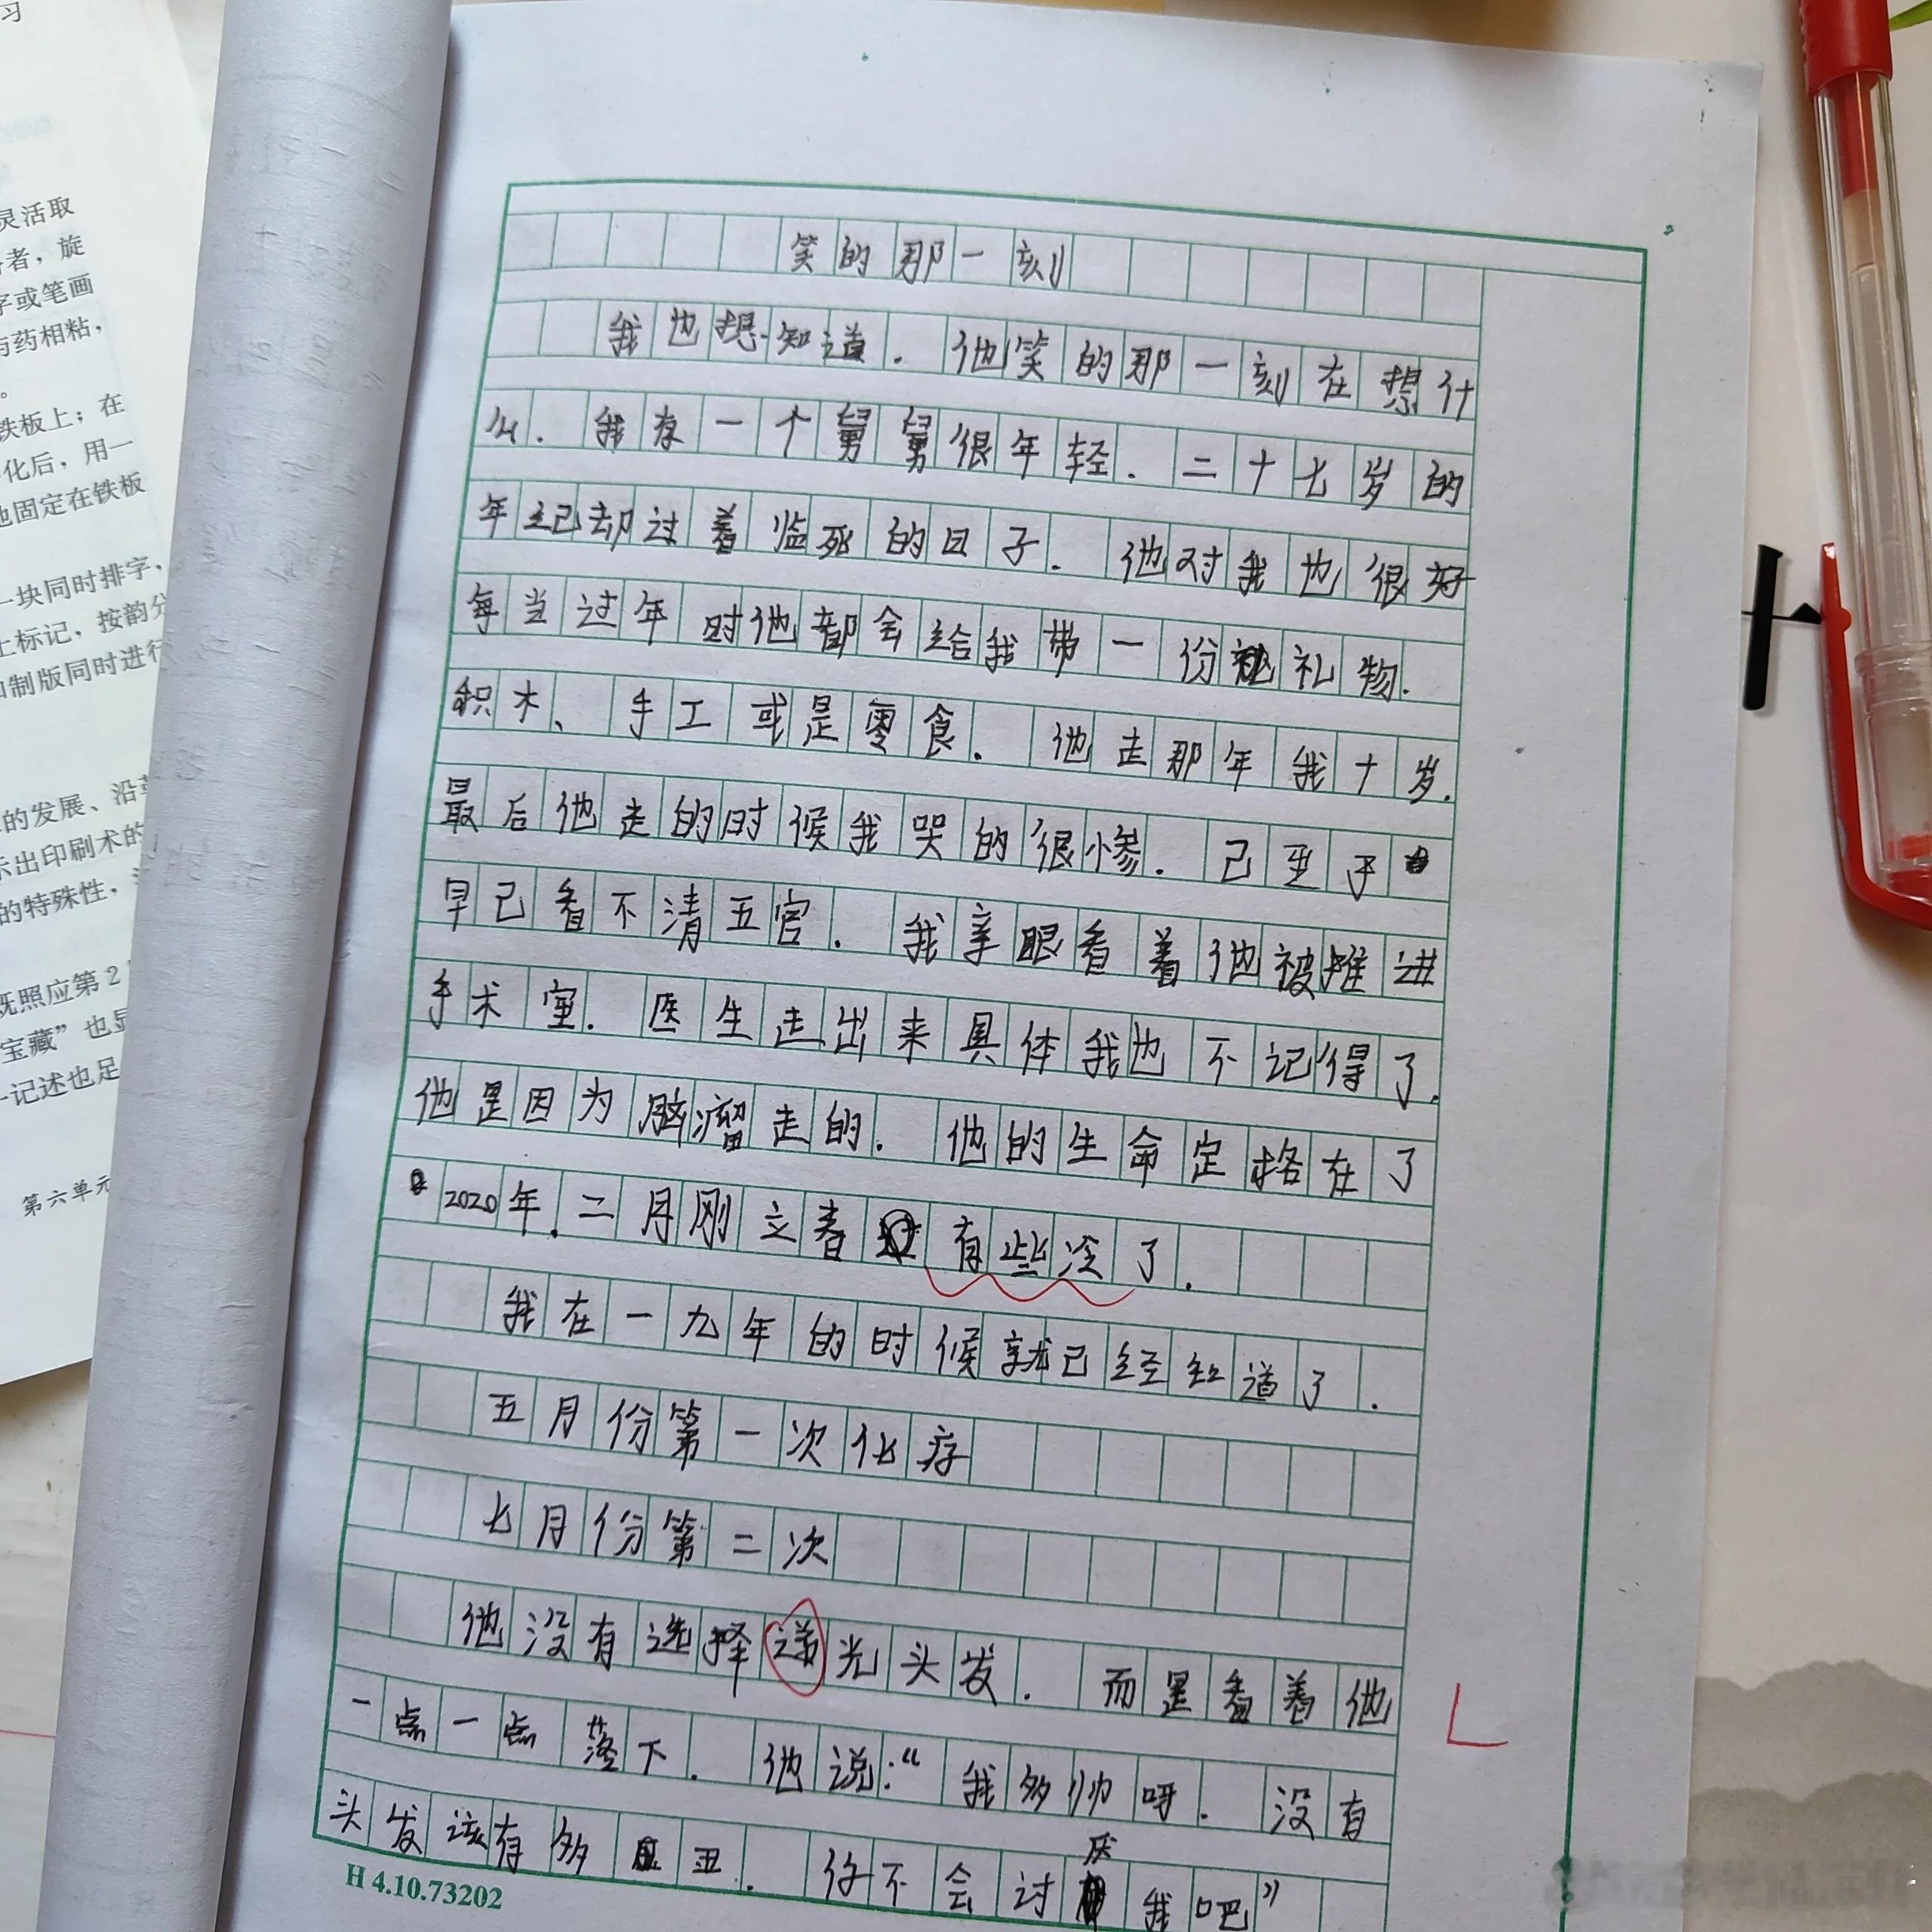 习
灵活取
者，旋
字或笔画
与药相粘，
。
铁板上；在
化后，用一
地固定在铁板
一块同时排字，
上标记，按韵分
和制版同时进行
的发展、沿革
示出印刷术的
的特殊性，
既照应第2
宝藏”也显
记述也足
第六单元
笑的那一刻
我也想知道.他笑的那一刻在想什
么.我有一个舅舅很年轻.二十七岁的
年纪却过着临死的日子.他对我也很好
每当过年时他都会给我带一份礼物.
积木、手工或是零食.他走那年我十岁.
最后他走的时候我哭的很惨.己至于
早已看不清五官.我亲眼看着他被推进
手术室.医生走出来具体我也不记得了.
他是因为脑瘤走的.他的生命定格在了
2020年.二月刚立春有些冷了.
我在一九年的时候就已经知道了.
五月份第一次化疗
七月份第二次
他没有选择光头发.而是看着他
一点一点落下.他说:“我多帅呀.没有
头发该有多丑.你不会讨厌我吧”
H 4.10.73202